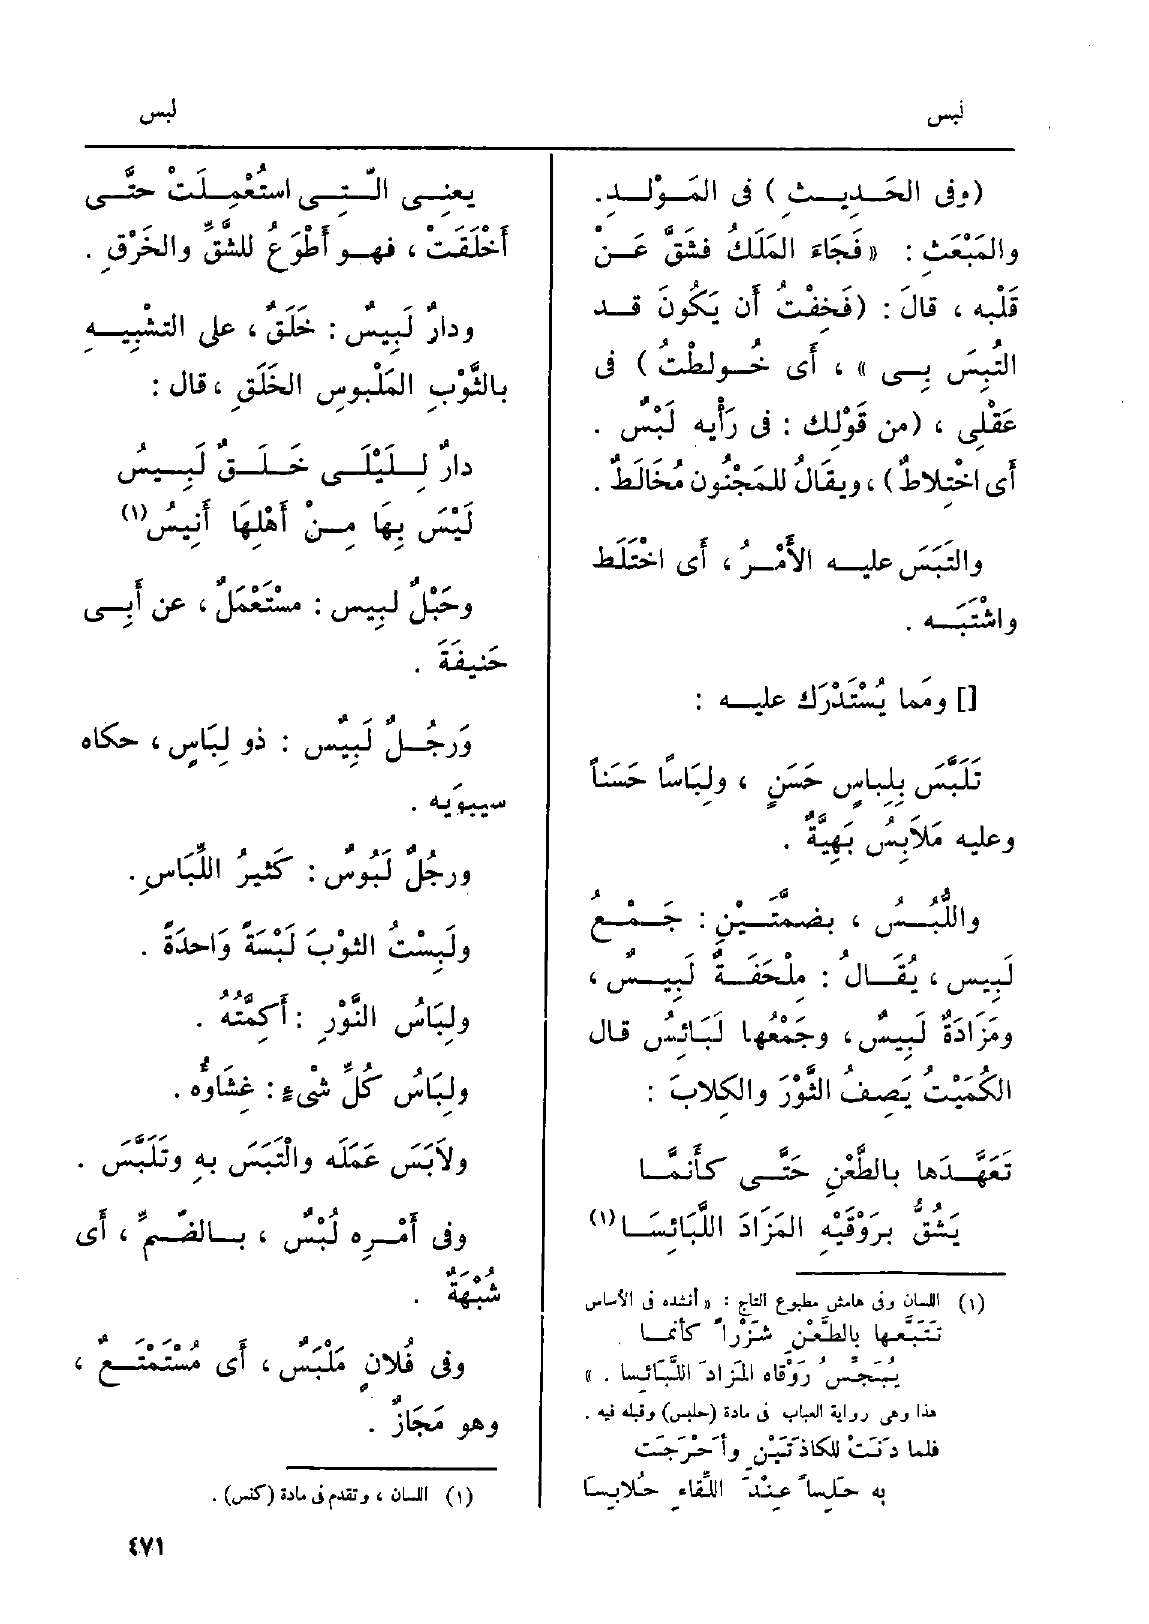 لبس
لبس
(وفى الحَدِيثِ) فى المَوْلِدِ.
والمَبْعَثِ : « فَجَاءَ المَلَكُ فشَقَّ عَنْ
قَلْبِه ، قالَ : (فَخِفْتُ أَن يَكُونَ قد
الْتُبِسَ بِى » ، أَى خُولِطْتُ ) فى
عَقْلِى ، (من قَوْلِك : فى رَأْيِه لَبْسٌ .
أَى اخْتِلاطٌ) ، ويقَالُ للمَجْنُون مُخَالَطٌ .
والْتَبَسَ عليه الأَمْرُ ، أَى اخْتَلَط
واشْتَبَه .
[] ومَما يُسْتَدْرَك عليه :
تَلَبَّسَ بِلِباسٍ حَسَنٍ ، ولِبَاسًا حَسَناً
وعليه مَلَابِسُ بَهِيَّةٌ .
واللُّبُسُ ، بضمَّتَيْنِ : جَمْعُ
لَبِيس ، يُقَالُ : مِلْحَفَةٌ لَبِيسٌ ،
ومَزَادَةٌ لَبِيسٌ ، وجَمْعُها لَبَائِسُ قال
الكُمَيْتُ يَصِفُ الثَّوْرَ والكِلابَ :
تَعَهَّدَها بالطَّعْنِ حَتَّى كأَنمَّا
يَشُقُّ برَوْقَيْهِ المَزَادَ اللَّبَائِسَا(١)
(١) اللسان وفى هامش مطبوع التاج : « أنشده فى الأساس
تَتَبَّعها بالطَّعْنِ شَزْراً كأنما
يُبَجِّسُ رَوْقاه المَزادَ اللَّبَائِسا . »
هذا وهى رواية العباب فى مادة (حلبس) وقبله فيه .
فلما دَنَتْ للكاذَتَيْنِ وأَحْرَجَت
به حلبساً عِنْدَ اللِّقَاءِ حُلابِسَا
يعنِى الَّتِى استُعْمِلَتْ حتَّى
أَخْلَقَتْ ، فهو أَطْوَعُ للشَّقِّ والخَرْقِ .
ودارٌ لَبِيسٌ : خَلَقٌ ، على التشْبِيهِ
بالثَّوْبِ المَلْبوسِ الخَلَقِ ، قال :
دارٌ لِلَيْلَى خَلَقٌ لَبِيسُ
لَيْسَ بِهَا مِنْ أَهْلِهَا أَنِيسُ(١)
وحَبْلٌ لبِيس : مسْتَعْمَلٌ ، عن أَبِى
حَنيفَةَ .
وَرجُلٌ لَبِيْسٌ : ذو لِبَاسٍ ، حكاه
سيبوَيه .
ورجُلٌ لَبُوسٌ : كَثيرُ اللِّبَاسِ .
ولَبِسْتُ الثوْبَ لَبْسَةً وَاحدَةً .
ولِبَاسُ النَّوْرِ : أَكِمَّتُهُ .
ولِبَاسُ كُلِّ شَىْءٍ : غِشَاؤُه .
ولاَبَسَ عَمَلَه والْتَبَسَ بهِ وتَلَبَّسَ .
وفى أَمْرِه لُبْسٌ ، بالضَّمِّ ، أَى
شُبْهَةٌ .
وفى فُلانٍ مَلْبَسٌ ، أَى مُسْتَمْتَعٌ ،
وهو مَجَازٌ .
(١) اللسان ، وتقدم فى مادة (كنس) .
٤٧١